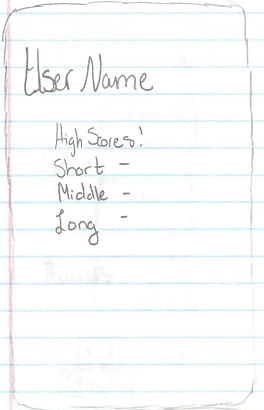 User Name
High Scores!
Short -
Middle -
Long -